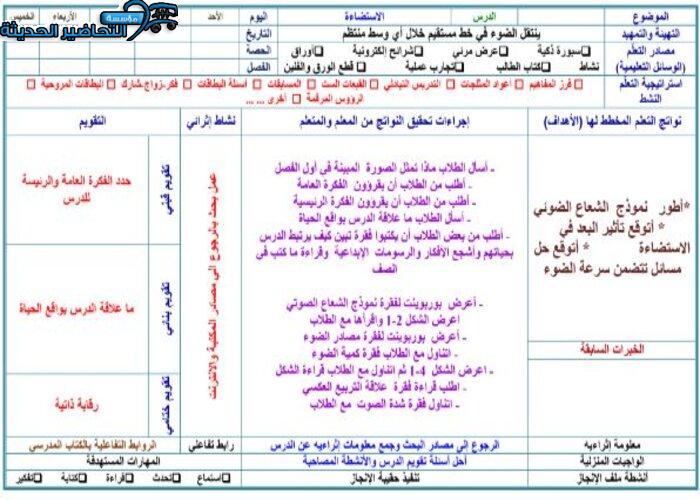 مؤسسة
التحاضير الحديثة
الموضوع
الدرس
الاستضاءة
اليوم
الأحد
الأربعاء
الخميس
التهيئة والتمهيد
ينتقل الضوء في خط مستقيم خلال أي وسط منتظم
التاريخ
مصادر التعلم
سبورة ذكية
عرض مرئي
شرائح إلكترونية
أوراق
الحصة
(الوسائل التعليمية)
نشاط
كتاب الطالب
تجارب عملية
قطع الورق والفلين
الفصل
استراتيجية التعلم النشط
فرز المفاهيم
أعواد المثلجات
التدريس التبادلي
القبعات الست
المسابقات
أسئلة البطاقات
فكر-زواج-شارك
البطاقات المروحية
الرؤوس المرقمة
أخرى ... ...
نواتج التعلم المخطط لها (الأهداف)
إجراءات تحقيق النواتج من المعلم والمتعلم
نشاط إثرائي
التقويم
*أطور نموذج الشعاع الضوئي
* أتوقع تأثير البعد في
الاستضاءة * أتوقع حل
مسائل تتضمن سرعة الضوء
الخبرات السابقة
- أسأل الطلاب ماذا تمثل الصورة المبينة في أول الفصل
- أطلب من الطلاب أن يقرؤون الفكرة العامة
- أطلب من الطلاب أن يقرؤون الفكرة الرئيسية
- أسأل الطلاب ما علاقة الدرس بواقع الحياة
- أطلب من بعض الطلاب أن يكتبوا فقرة تبين كيف يرتبط الدرس
بحياتهم وأشجع الأفكار والرسومات الإبداعية وقراءة ما كتب في
الصف
- أعرض بوربوينت لفقرة نموذج الشعاع الصوتي
اعرض الشكل 2-1 واقرأها مع الطلاب
- أعرض بوربوينت لفقرة مصادر الضوء
- أتناول مع الطلاب فقرة كمية الضوء
- اعرض الشكل 4-1 ثم اتناول مع الطلاب قراءة الشكل
- اطلب قراءة فقرة علاقة التربيع العكسي
- اتناول فقرة شدة الصوت مع الطلاب
عمل بحث بالرجوع الى مصادر المكتبة والانترنت
تقويم قبلي
حدد الفكرة العامة والرئيسة
للدرس
تقويم بنائي
ما علاقة الدرس بواقع الحياة
تقويم ختامي
رقابة ذاتية
معلومة إثراءيه
الرجوع إلى مصادر البحث وجمع معلومات إثراءيه عن الدرس
رابط تفاعلي
الروابط التفاعلية بالكتاب المدرسي
الواجبات المنزلية
أحل أسئلة تقويم الدرس والأنشطة المصاحبة
المهارات المستهدفة
أنشطة ملف الإنجاز
تنفيذ حقيبة الإنجاز
استماع
تحدث
قراءة
كتابة
تفكير